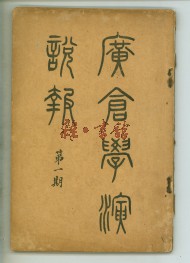 廣倉學演
說報
第一期